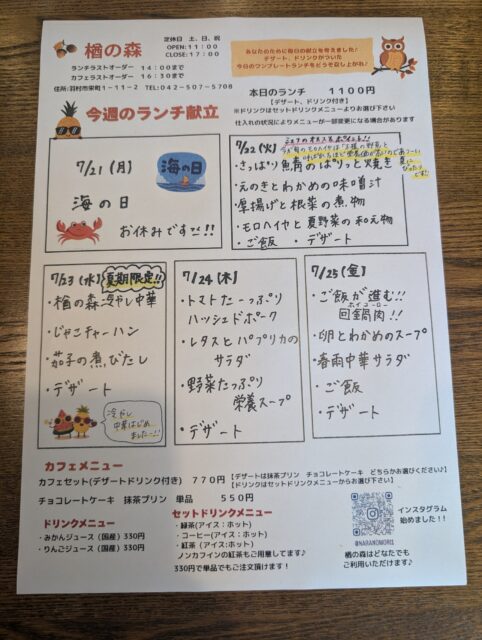 楢の森
定休日 土、日、祝
OPEN:11:00
CLOSE:17:00
ランチラストオーダー 14:00まで
カフェラストオーダー 16:30まで
住所:羽村市栄町1-11-2 TEL:042-507-5708
あなたのために毎日の献立を考えました♪
デザート、ドリンクがついた
今日のワンプレートランチをどうぞ召し上がれ♪
本日のランチ 1100円
【デザート、ドリンク付き】
※ドリンクはセットドリンクメニューよりお選び下さい
仕入れの状況によりメニューが一部変更になる場合があります
今週のランチ献立
7/21(月)
海の日
海の日
お休みですー!!
7/22(火)
・さっぱり魚青のぱりっと焼き
・えのきとわかめの味噌汁
・厚揚げと根菜の煮物
・モロヘイヤと夏野菜の和え物
・ご飯 ・デザート
7/23(水)夏期限定!!
・楢の森冷やし中華
・じゃこチャーハン
・茄子の煮びたし
・デザート
冷やし
中華はじめ
ましたー!!
7/24(木)
・トマトたーっぷり
ハッシュドポーク
・レタスとパプリカの
サラダ
・野菜たっぷり
栄養スープ
・デザート
7/25(金)
・ご飯が進む!!
ホイコーロー
回鍋肉!!
・卵とわかめのスープ
・春雨中華サラダ
・ご飯
・デザート
カフェメニュー
カフェセット(デザートドリンク付き) 770円【デザートは抹茶プリン チョコレートケーキ どちらかお選びください♪】
【ドリンクはセットドリンクメニューからお選び下さい】
チョコレートケーキ 抹茶プリン 単品 550円
ドリンクメニュー
・みかんジュース(国産)330円
・りんごジュース(国産)330円
セットドリンクメニュー
・緑茶(アイス:ホット)
・コーヒー(アイス:ホット)
・紅茶(アイス:ホット)
ノンカフェインの紅茶もご用意してます♪
330円で単品でもご注文頂けます!
@NARANOMORI1
インスタグラム
始めました!!
楢の森はどなたでも
ご利用いただけます♪